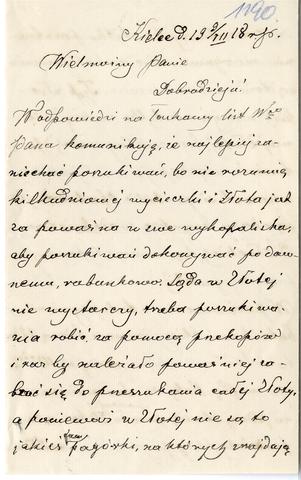 1190.
Kielce d. 19 9/XII 18 r.
Wielmożny Panie
Dobrodzieju!
W odpowiedzi na łaskawy list Wgo
Pana komunikuję, że najlepiej za-
niechać poszukiwań, bo nie rozumię
kilkudniowej wycieczki i Złota jest
za poważna w swe wykopaliska,
aby poszukiwań dokonywać po daw-
nemu, rabunkowo. Sąda w Złotej
nie wystarczy, trzeba poszukiwa-
nia robić za pomocą przekopów
i raz by należało poważniej za-
brać się do przeszukania całej Złoty,
a ponieważ w Złotej nie są to
jakieś pagórki, na których znajdują